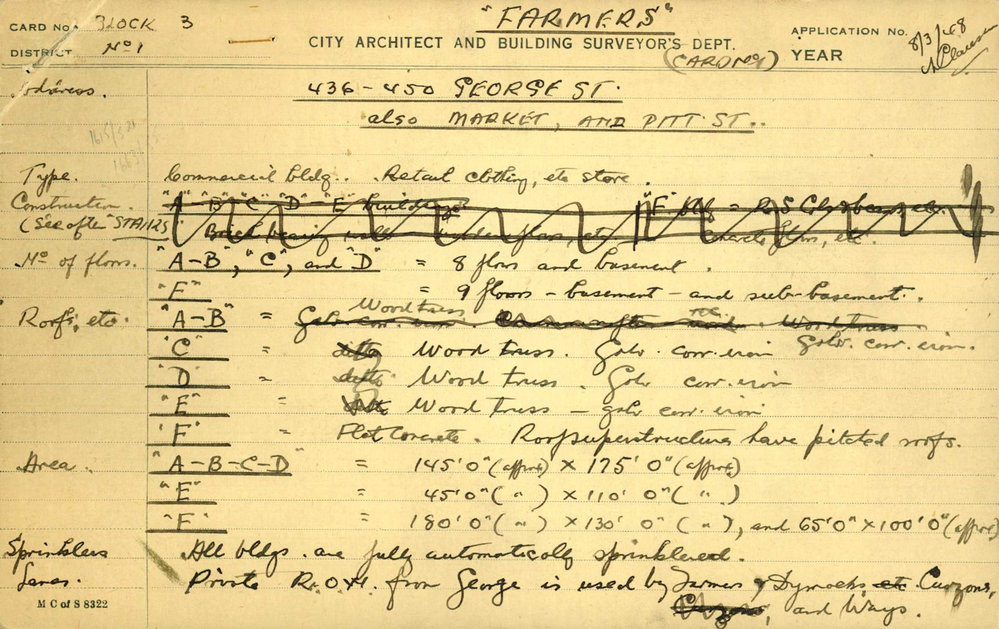 CARD No. BLOCK 3
"FARMERS"
APPLICATION No.
8/3/48
DISTRICT No 1
CITY ARCHITECT AND BUILDING SURVEYOR'S DEPT.
(CARD No 1)
YEAR
Address.
436-450 GEORGE ST.
also MARKET, AND PITT ST..
Type. Commercial bldg.. Retail clothing, etc store.
Construction. "A" "B" "C" "D" "E" buildings "F" bldg =
(See after "STA/125 Brick bearing walls wooden floors, etc concrete floors, etc.
No of floors. "A-B", "C", and "D" = 8 floors and basement.
"F" = 9 floors - basement - and sub-basement.
Wood truss
Roofs, etc. "A-B" = Galv. corr. iron. Wood truss. Galv. corr. iron.
"C" = ditto Wood truss. Galv corr. iron
"D" = ditto. Wood truss. Galv corr. iron
"E" = Wood truss - galv corr. iron
"F" = Flat Concrete. Roof superstructures have pitched roofs.
Area. "A-B-C-D" = 145' 0" (approx) x 175' 0" (approx)
"E" = 45' 0" ( " ) x 110' 0" ( " )
"F" = 180' 0" ( " ) x 130' 0" ( " ), and 65' 0" x 100' 0" (approx)
Sprinklers All bldgs. are fully automatically sprinklered.
Lanes. Private R.O.W. from George is used by Farmers, Dymocks, etc Curzons,
Curzons, and Ways.
M C of S 8322